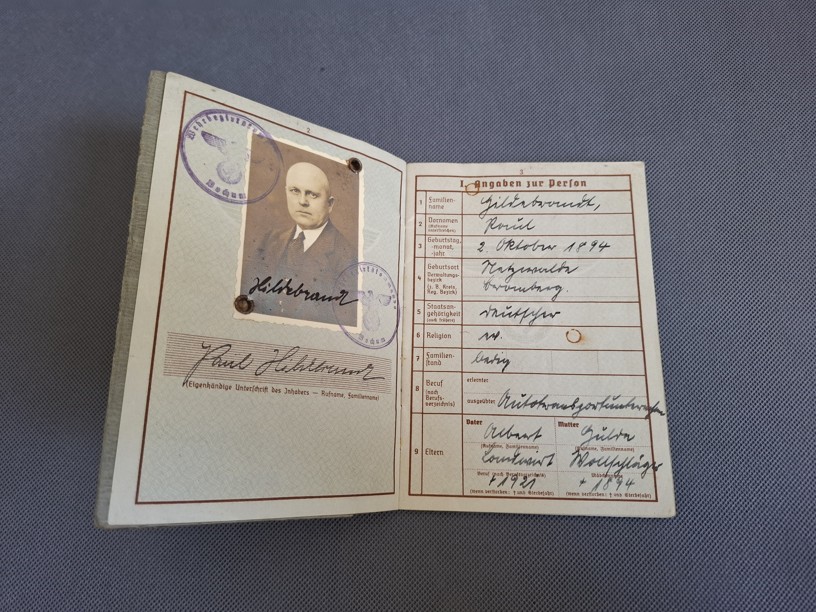 2
Bochum
Hildebrandt
Bochum
Paul Hildebrandt
(Eigenhändige Unterschrift des Inhabers — Rufname, Familienname)
3
I. Angaben zur Person
1 Familien-name Hildebrandt,
2 Vornamen (Rufname unterstreichen) Paul
3 Geburtstag, -monat, -jahr 2. Oktober 1894
4 Geburtsort Verwaltungs-bezirk (z. B. Kreis, Reg. Bezirk) Netzwalde
Bromberg.
5 Staatsan-gehörigkeit (auch frühere) deutscher
6 Religion ev.
7 Familien-stand ledig
8 Beruf (nach Berufs-verzeichnis) erlernter
ausgeübter
9 Eltern Vater Mutter
Albert Hulda
(Rufname, Familienname) (Rufname, Familienname)
Landwirt Wollschläger
Beruf (nach Berufsverzeichnis) Mädchenname
+ 1921 + 1894
(wenn verstorben: † und Sterbejahr) (wenn verstorben: † und Sterbejahr)